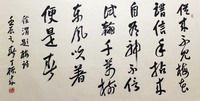 從來不見梅花
譜信手拈來
自有神不信
試看千萬樹
東風吹著
便是春
徐渭題梅詩
壬辰